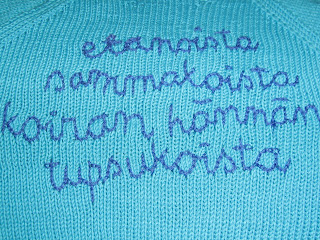 etanoista
sammakoista
koiran hännän
tupsukoista